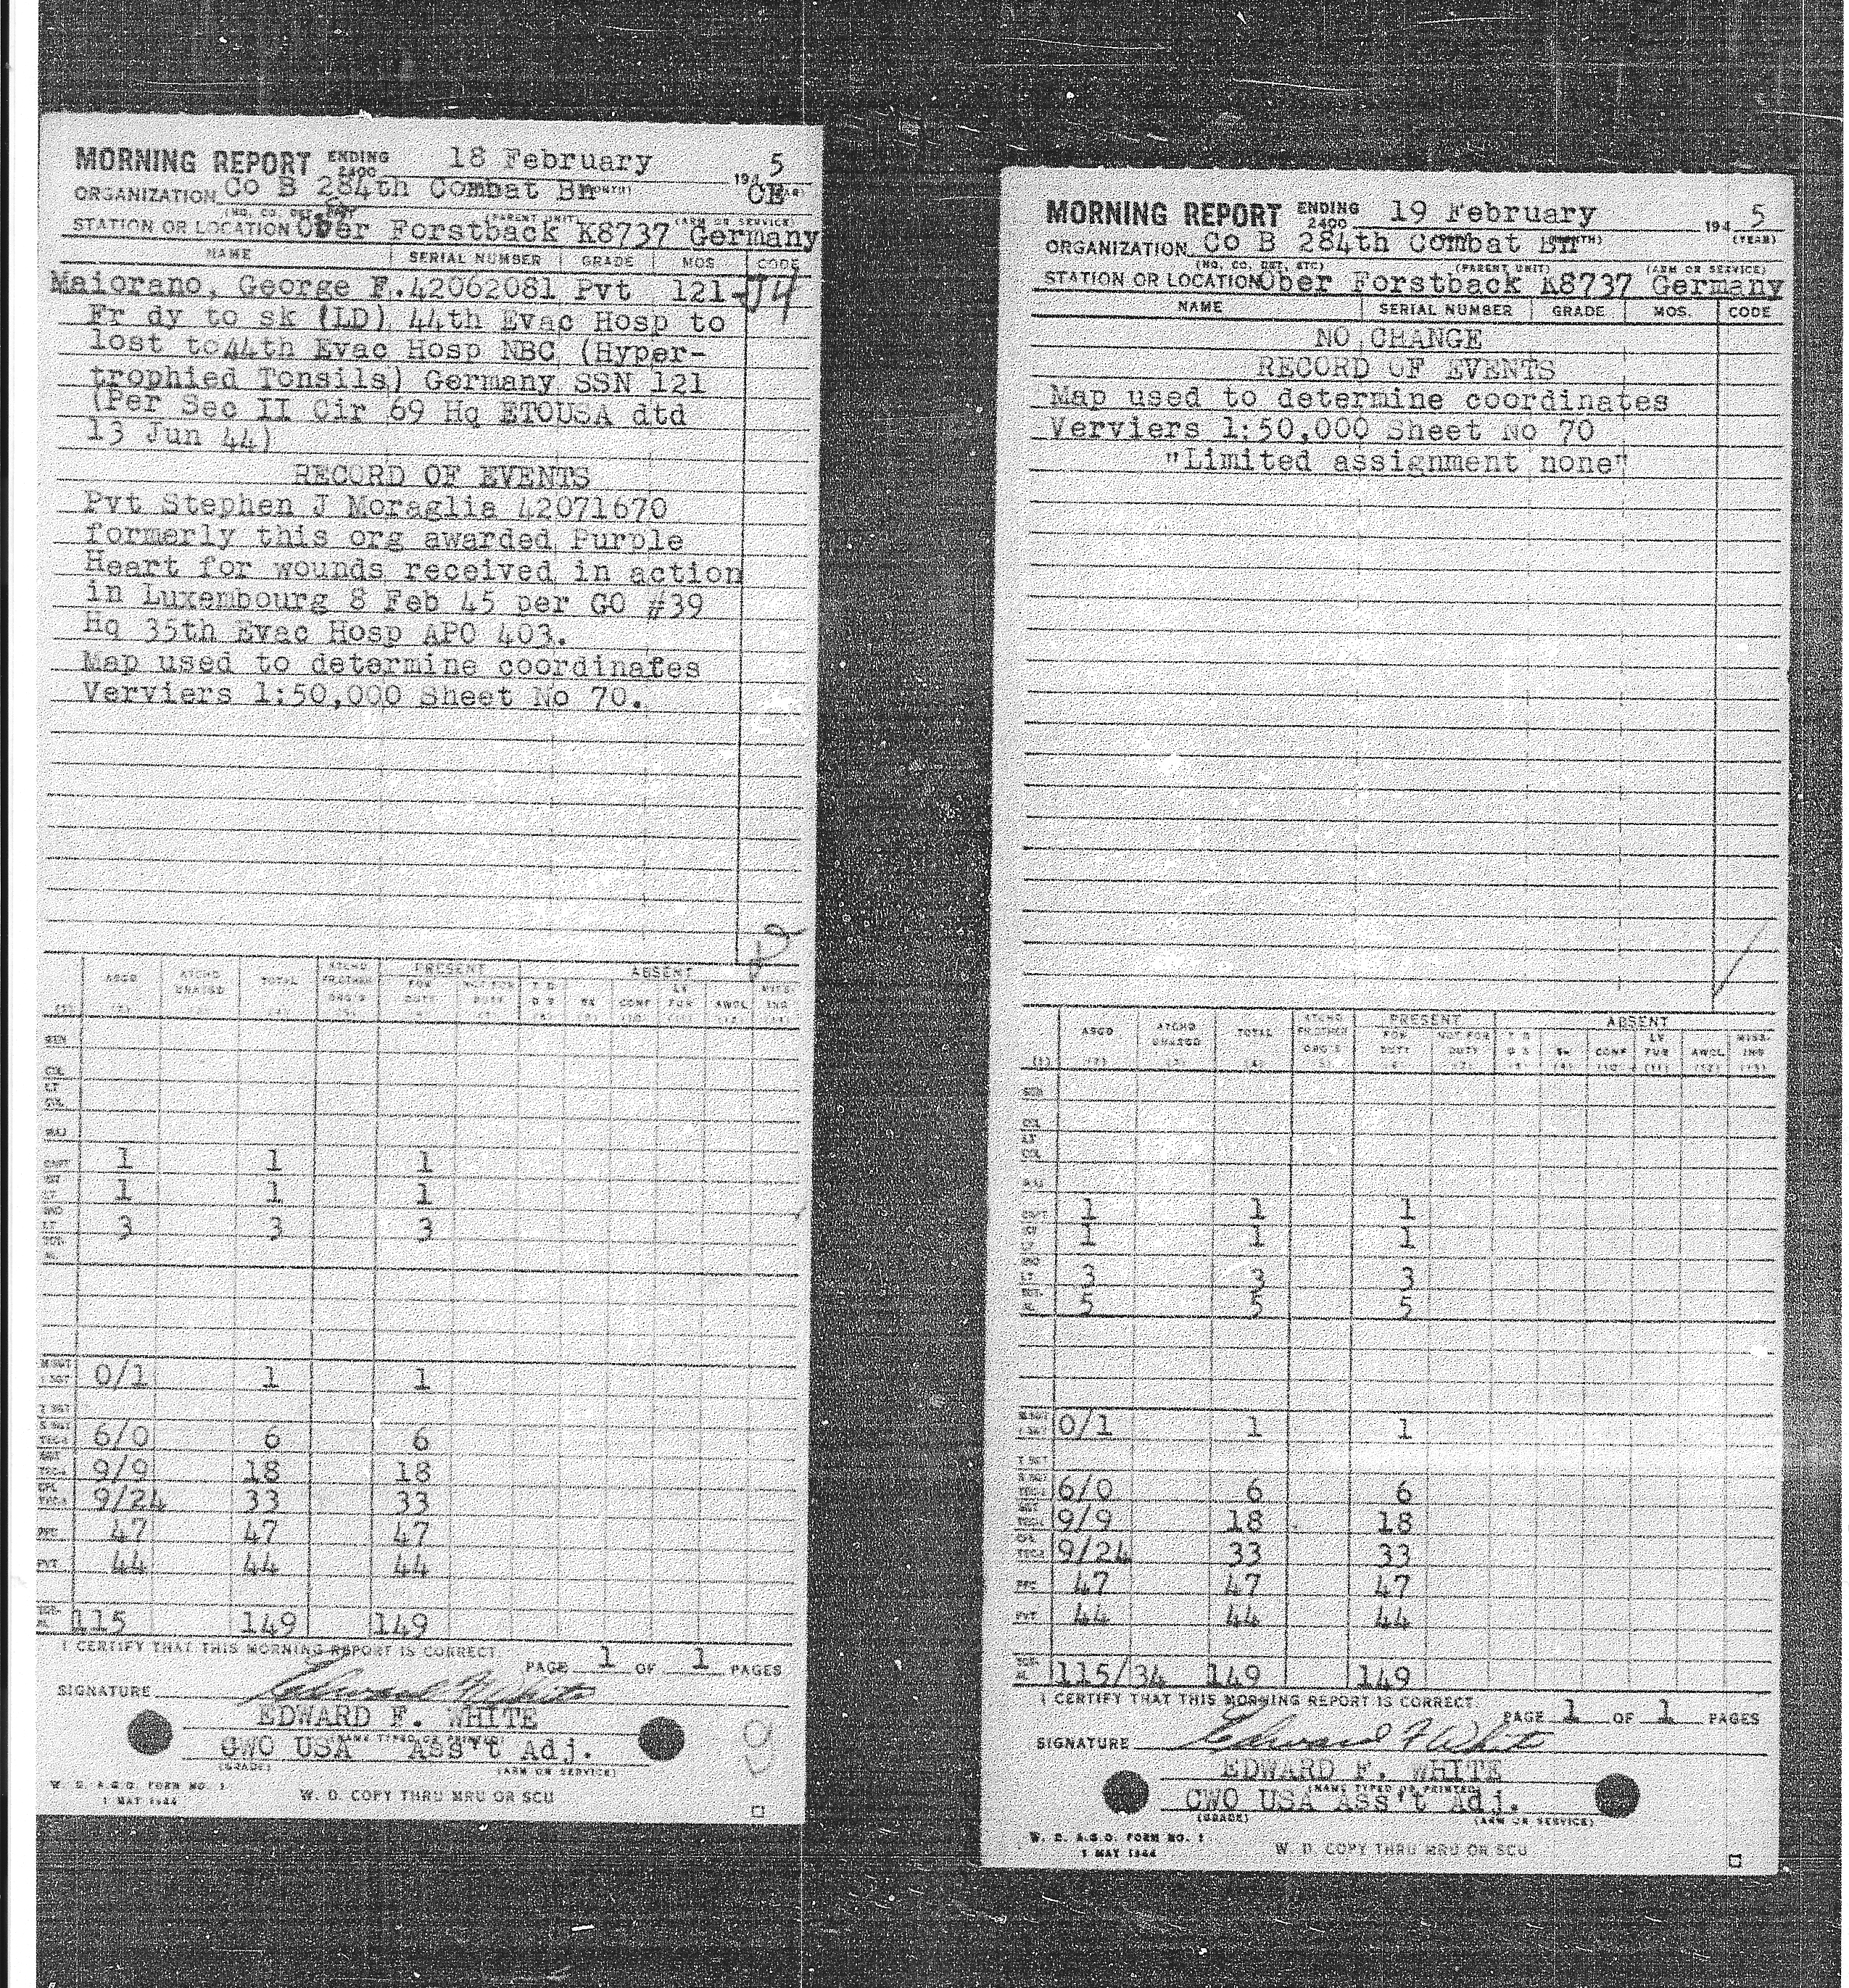 MORNING REPORT ENDING 2400 18 February 194 5
ORGANIZATION Co B 284th Combat Bn CE
STATION OR LOCATION Ober Forstback K8737 Germany
NAME SERIAL NUMBER GRADE MOS CODE
Maiorano, George F. 42062081 Pvt 121 J4
Fr dy to sk (LD) 44th Evac Hosp to
lost to 44th Evac Hosp NBC (Hyper-
trophied Tonsils) Germany SSN 121
(Per Sec II Cir 69 Hq ETOUSA dtd
13 Jun 44)
RECORD OF EVENTS
Pvt Stephen J Moraglia 42071670
formerly this org awarded Purple
Heart for wounds received in action
in Luxembourg 8 Feb 45 per GO #39
Hq 35th Evac Hosp APO 403.
Map used to determine coordinates
Verviers 1:50,000 Sheet No 70.
PRESENT ABSENT
ASGD ATCHD UNASGD TOTAL ATCHD FR OTHER ORG'S FOR DUTY NOT FOR DUTY T D D S SK CONF LV FUR AWOL MISS-ING
COL
LT COL
MAJ
CAPT 1 1 1
LT 1 1 1
LT 3 3 3
M SGT 1 SGT 0/1 1 1
T SGT
6/0 6 6
9/9 18 18
9/24 33 33
PFC 47 47 47
PVT 44 44 44
115 149 149
I CERTIFY THAT THIS MORNING REPORT IS CORRECT
PAGE 1 OF 1 PAGES
SIGNATURE Edward F White
EDWARD F. WHITE
(NAME TYPED OR PRINTED)
CWO USA Ass't Adj.
(GRADE) (ARM OR SERVICE)
W. D. A.G.O. FORM NO. 1
1 MAY 1944
W. D. COPY THRU MRU OR SCU
MORNING REPORT ENDING 2400 19 February 194 5
(YEAR)
ORGANIZATION Co B 284th Combat Bn
(NO. CO. DET. ETC) (PARENT UNIT) (ARM OR SERVICE)
STATION OR LOCATION Ober Forstback K8737 Germany
NAME SERIAL NUMBER GRADE MOS. CODE
NO CHANGE
RECORD OF EVENTS
Map used to determine coordinates
Verviers 1:50,000 Sheet No 70
"Limited assignment none"
PRESENT ABSENT
(1) ASGD ATCHD UNASGD TOTAL ATCHD FR OTHER ORG'S FOR DUTY NOT FOR DUTY T D D S SK CONF LV FUR AWOL MISS-ING
COL
LT COL
MAJ
CAPT 1 1 1
1 1 1
LT 3 3 3
5 5 5
0/1 1 1
T SGT
6/0 6 6
9/9 18 18
9/24 33 33
PFC 47 47 47
PVT 44 44 44
115/34 149 149
I CERTIFY THAT THIS MORNING REPORT IS CORRECT.
PAGE 1 OF 1 PAGES
SIGNATURE Edward F White
EDWARD F. WHITE
(NAME TYPED OR PRINTED)
CWO USA Ass't Adj.
(GRADE) (ARM OR SERVICE)
W. D. A.G.O. FORM NO. 1
1 MAY 1944
W. D. COPY THRU MRU OR SCU